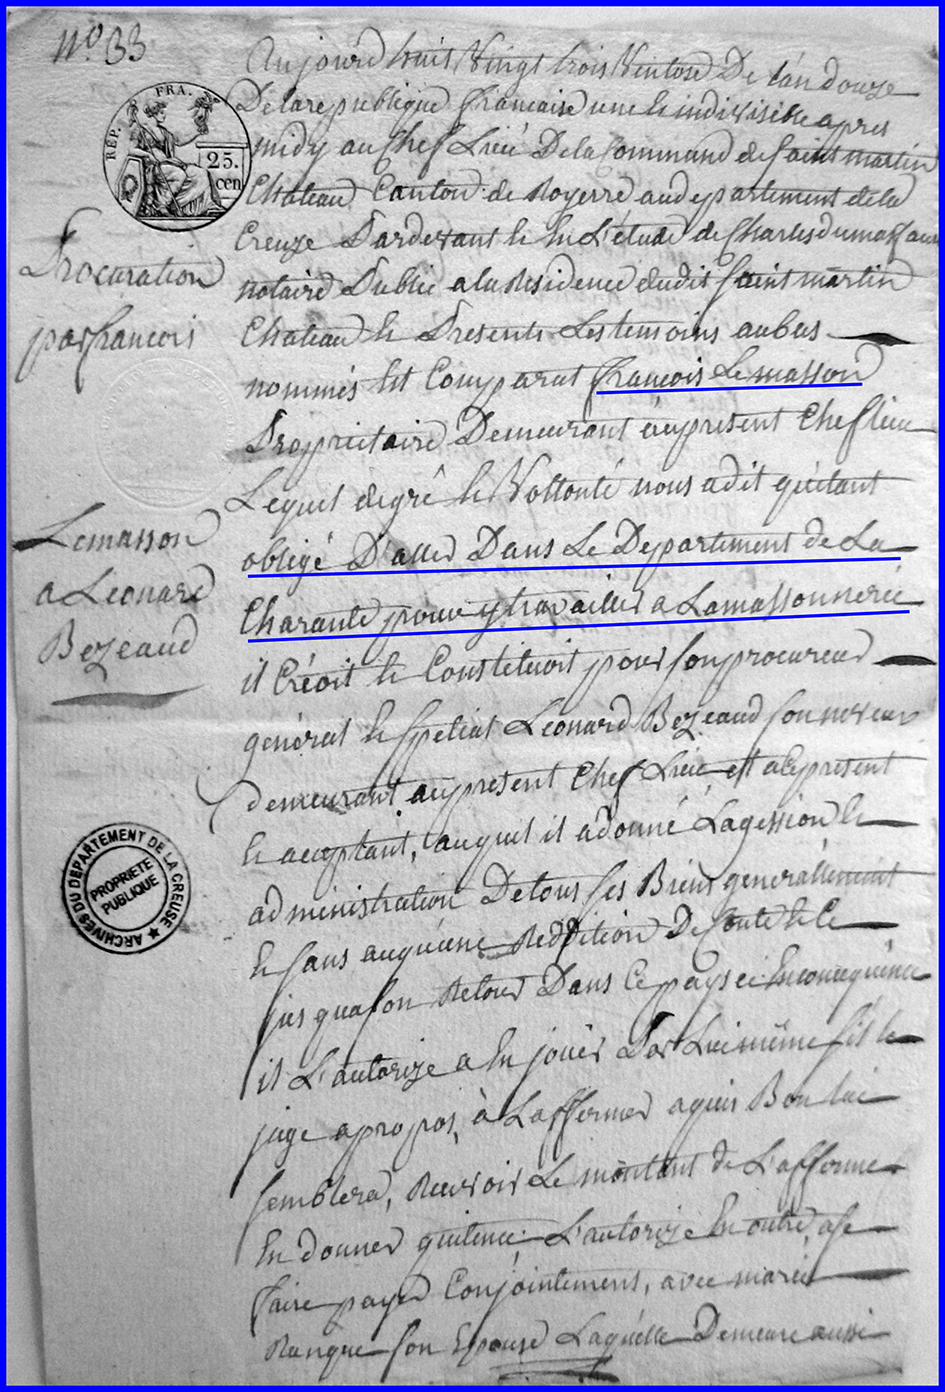 n° 33
REP. FRA.
25.
cen
Procuration
par francois
Lemasson
a Leonard
Bezeaud
ARCHIVES DU DEPARTEMENT DE LA CREUSE
PROPRIETE
PUBLIQUE
Aujourd huis Vingt trois Ventose De L'an douze
De la republique francaise une et indivisible apres
midy au Chef Lieu De la Command de saint martin
Chateau Canton de Royerre au departement de la
Creuze Pardevant et En L'étude de Charles dumas
notaire Public a la Residence dudit saint martin
Chateau et Presents Les temoins au bas
nommés Est Comparut francois Le masson
Proprietaire Demeurant au present Chef lieu
Lequel de gré et Vollonté nous a dit qu'étant
obligé D'aller Dans Le Departement de La
Charante pour y travailler a La massonnerie
il Créoit et Constituoit pour son procureur
général et spetial Léonard Bezeaud son neveux
demeurant au present Chef Lieu est a ce present
et acceptant, auquel il a donné La gession et
administration De tous ses Biens generallement
et sans auquune Reddition De Conte et Ce
jus qua son Retour Dans Ce pays ci En consequence
il L'autorize a En jouir Par Lui même s'il le
juge a propos, à L'affermer a qui Bon lui
semblera, Recevoir Le montant de L'afferme
En donner quitence, L'autorize En outre, a se
faire payer Conjointement, avec marie
Ranque son Epouse Laquelle Demeure aussi